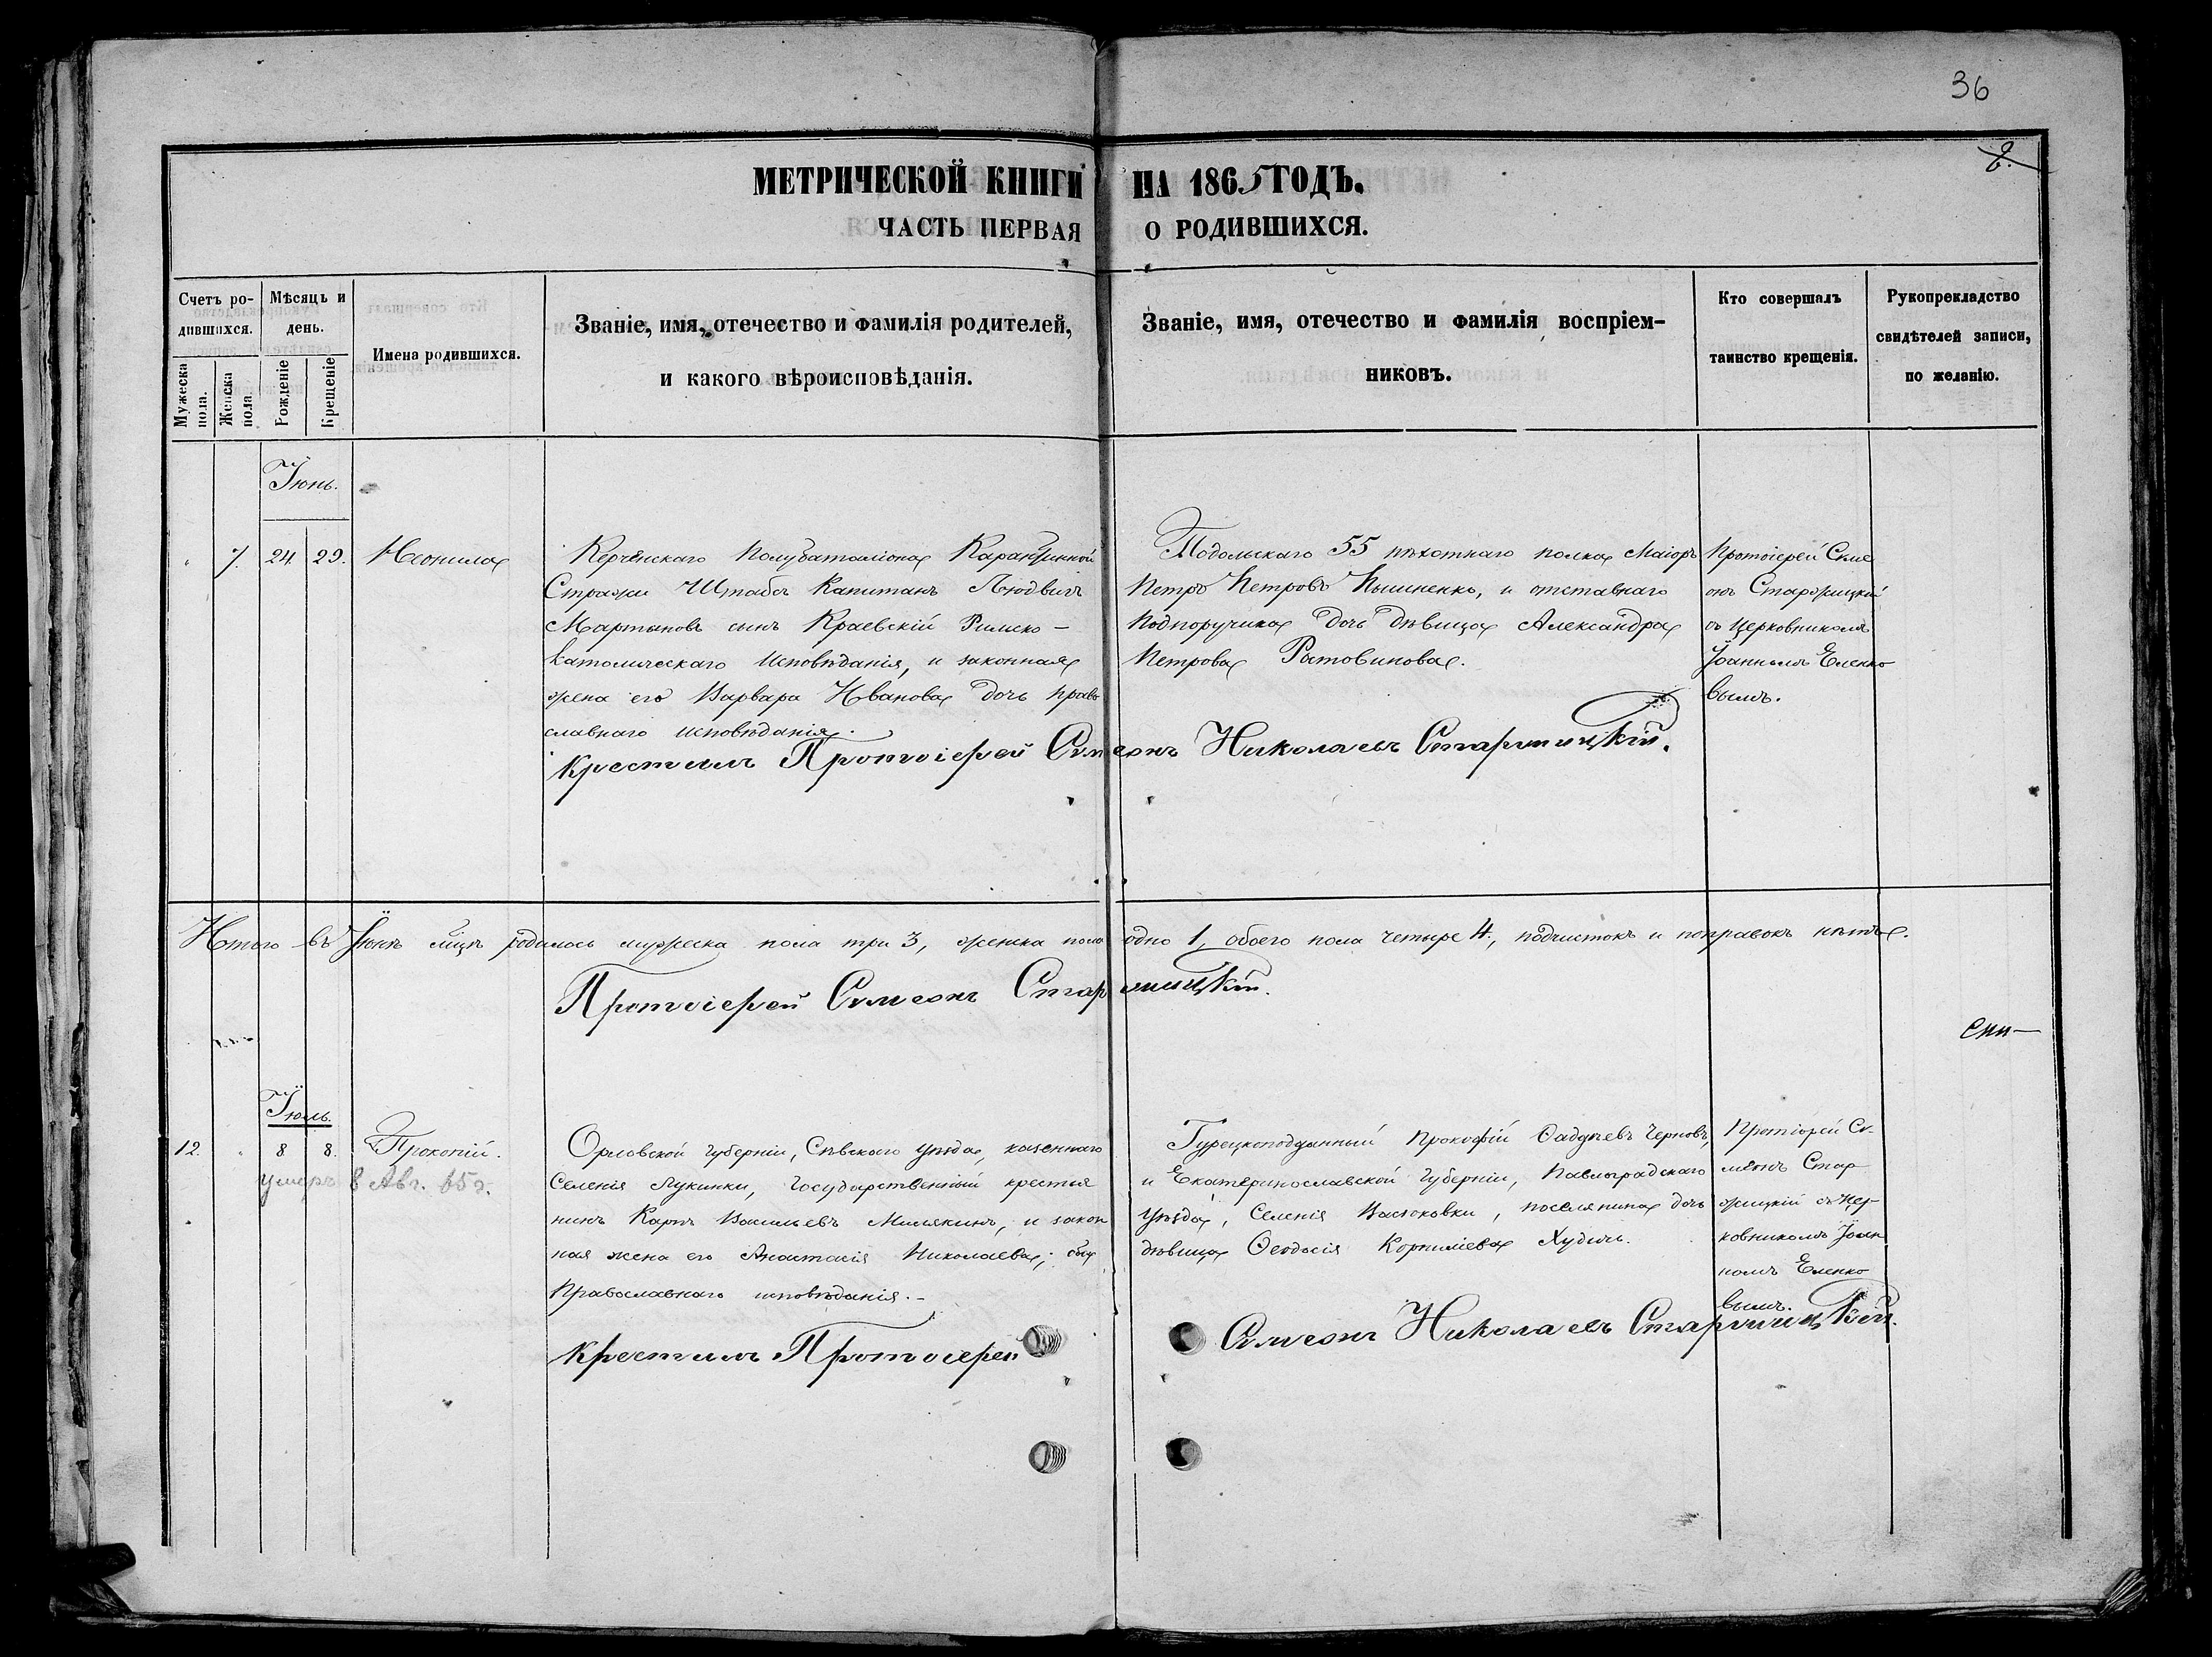 36
8.
МЕТРИЧЕСКОЙ КНИГИ НА 1865 ГОДЪ.
ЧАСТЬ ПЕРВАЯ О РОДИВШИХСЯ.
Счетъ ро-
дившихся.
Мужеска пола.
Женска пола.
Мѣсяцъ и
день.
Рожденіе
Крещеніе
Имена родившихся.
Званіе, имя, отечество и фамилія родителей,
и какого вѣроисповѣданія.
Званіе, имя, отечество и фамилія воспріем-
никовъ.
Кто совершалъ
таинство крещенія.
Рукопрекладство
свидѣтелей записи,
по желанію.
Іюнь.
7. 24. 29. Неонила
Керченскаго Полубаталіона Карантинной
Стражи Штабсъ Капитанъ Людвигъ
Мартыновъ сынъ Краевскій Римско-
католическаго исповѣданія, и законная
жена его Варвара Иванова дочь право
славнаго исповѣданія.
Подольскаго 55 пѣхотнаго полка Маіоръ
Петръ Петровъ и отставнаго
Подпоручика дочь дѣвица Александра
Петрова
Протоіерей Симе
онъ Старжицкій
съ церковникомъ
Іоанномъ Еленко
вымъ.
Крестилъ Протоіерей Симеонъ Николаевъ
Итого въ Іюнѣ мцѣ родилось мужеска пола три 3, женска пола одно 1, обоего пола четыре 4, подчистокъ и поправокъ нѣтъ.
Протоіерей Симеонъ
Іюль.
12. 8 8. Прокопій.
умеръ 8 Авг. 65 г.
Орловской губерніи, Сѣвскаго уѣзда, казеннаго
Селенія Лукинки, государственный крестья
нинъ Карпъ Васильевъ и закон
ная жена его Анастасія Николаева; оба
Православнаго исповѣданія.-
Турецкоподданный Прокофій Фадѣевъ Черновъ,
и Екатеринославской губерніи, Павлоградскаго
уѣзда, Селенія Васюковки, поселянина дочь
дѣвица Феодосія Корниліева
Протіерей Си-
меонъ Стар
жицкій съ цер-
ковникомъ Іоан
номъ Еленко
вымъ.
Крестилъ Протоіерей Симеонъ Николаевъ